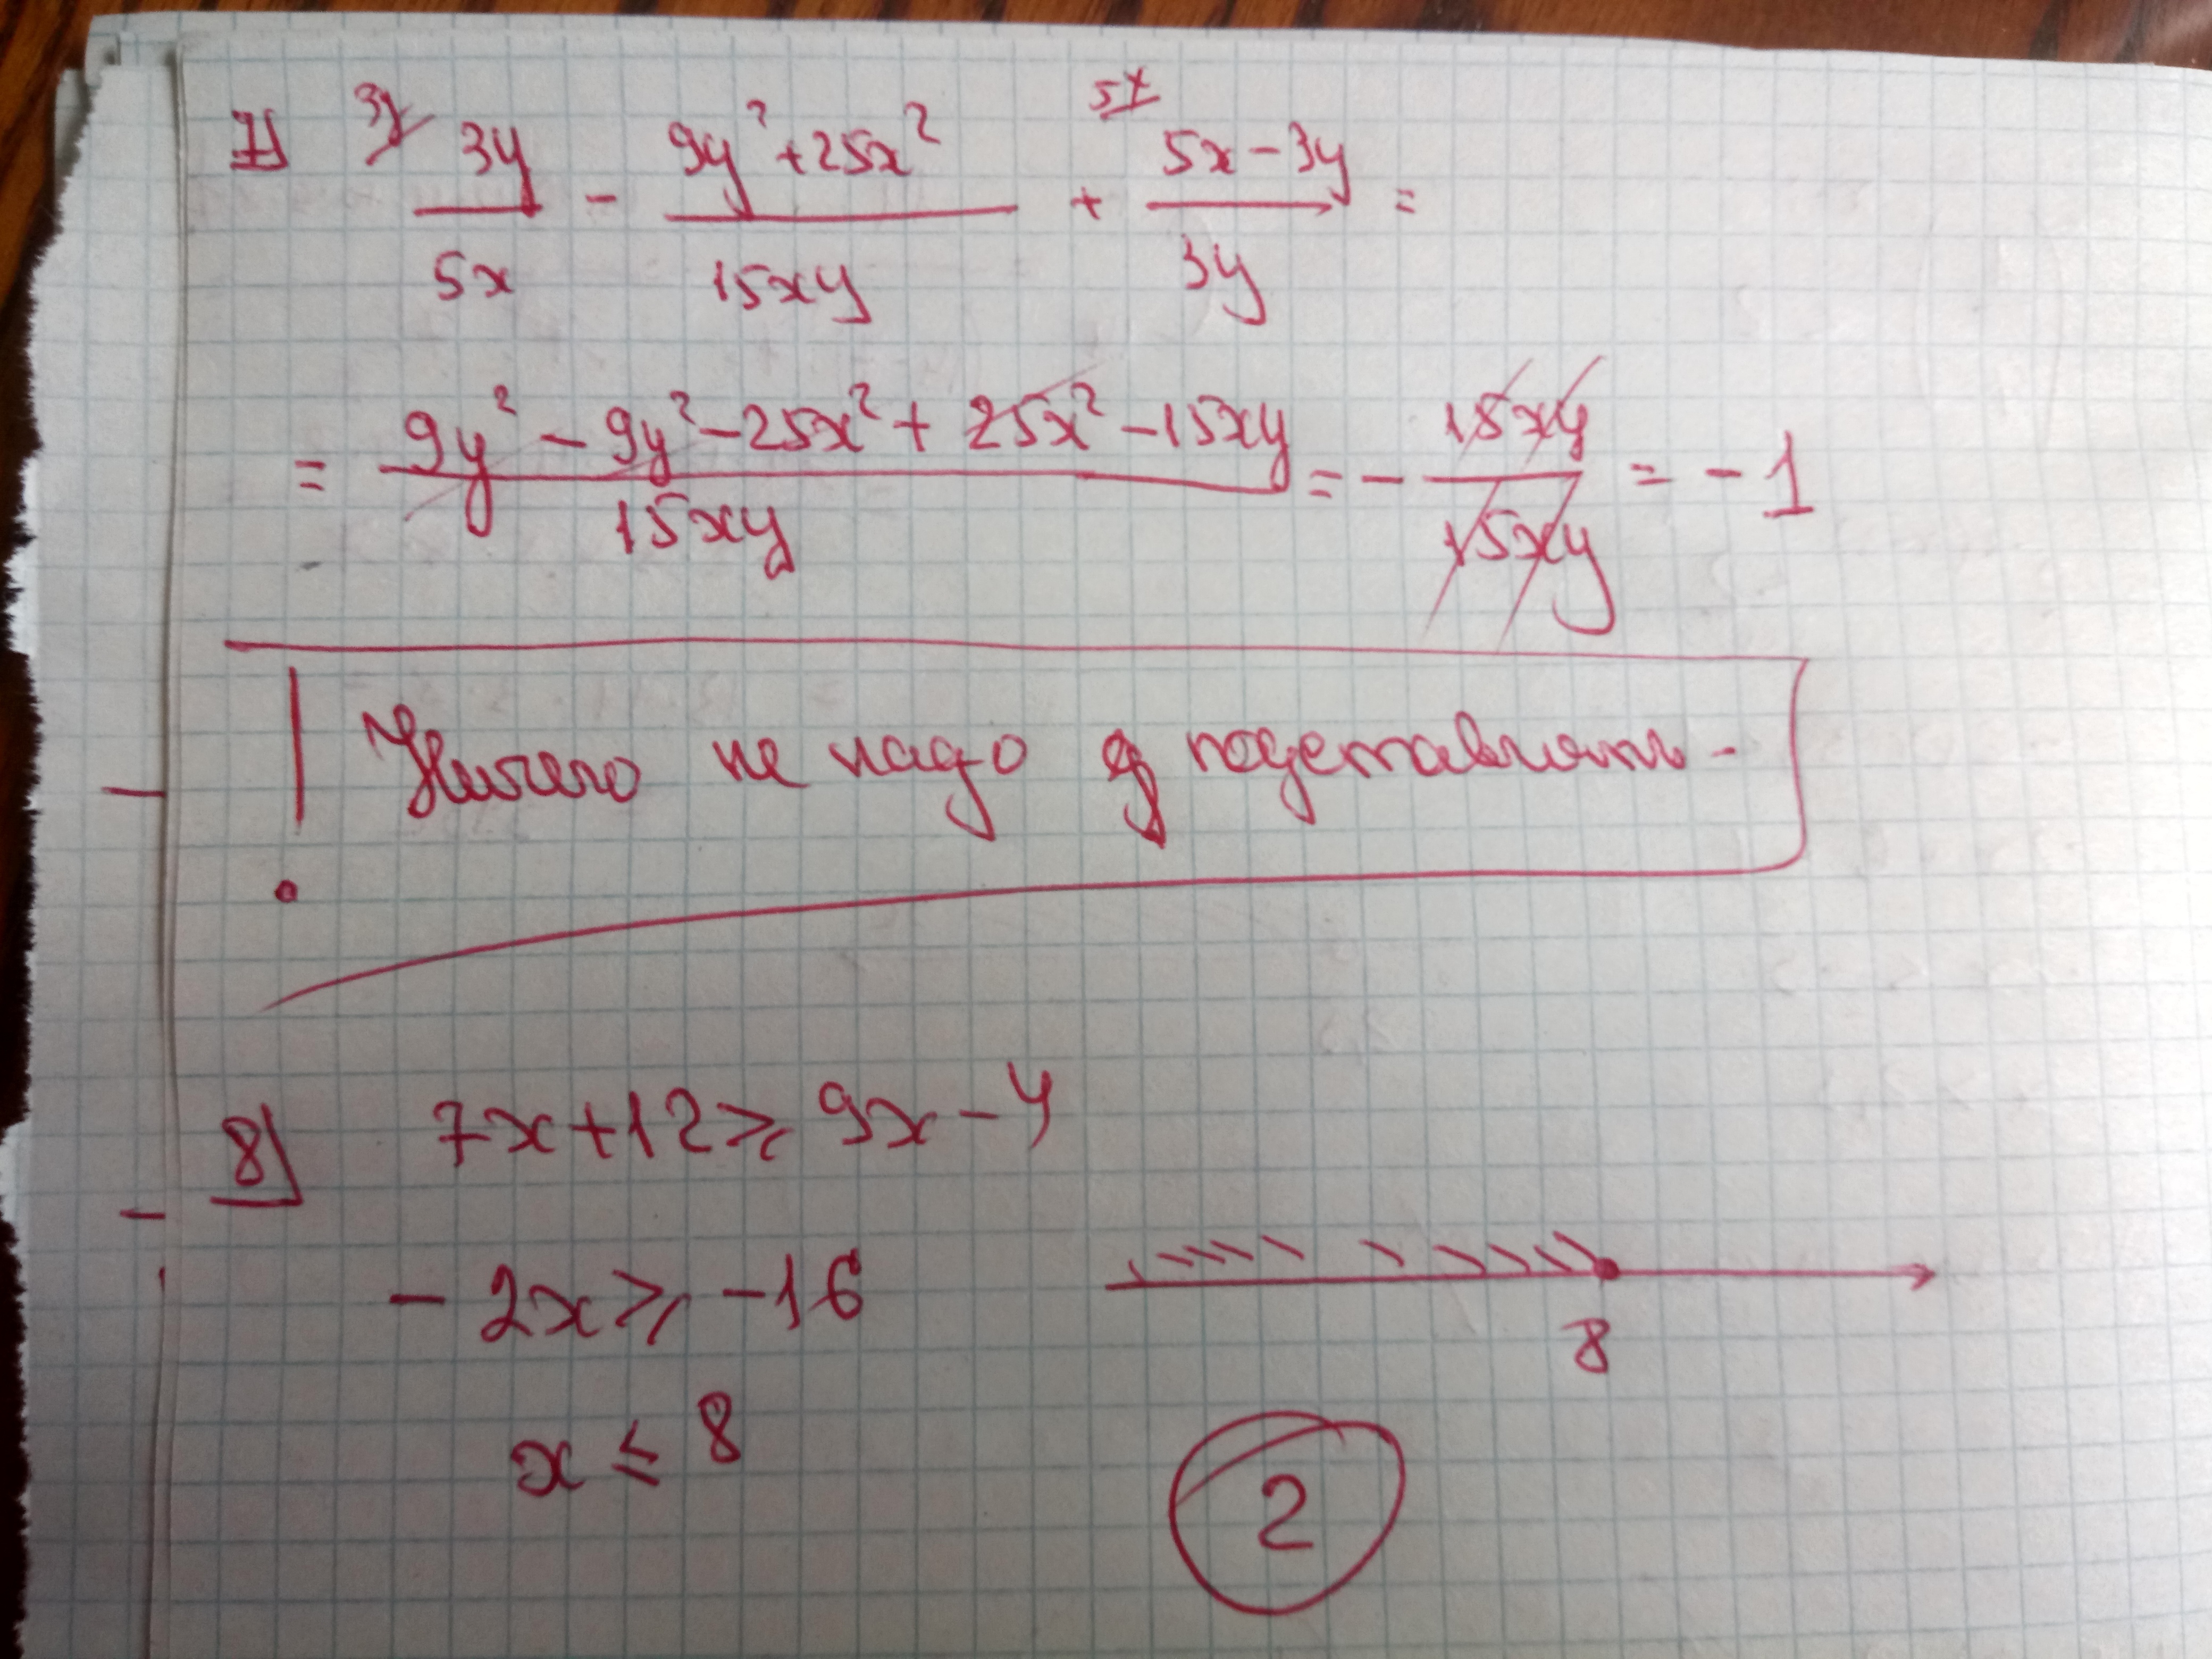 7) 3y 3y/5x - (9y²+25x²)/15xy + 5x (5x-3y)/3y =
= (9y² - 9y² - 25x² + 25x² - 15xy)/15xy = - 15xy/15xy = -1
! Ничего не надо подставлять -
8) 7x+12 ⩾ 9x-4
- 2x ⩾ -16
8
x ≤ 8
2